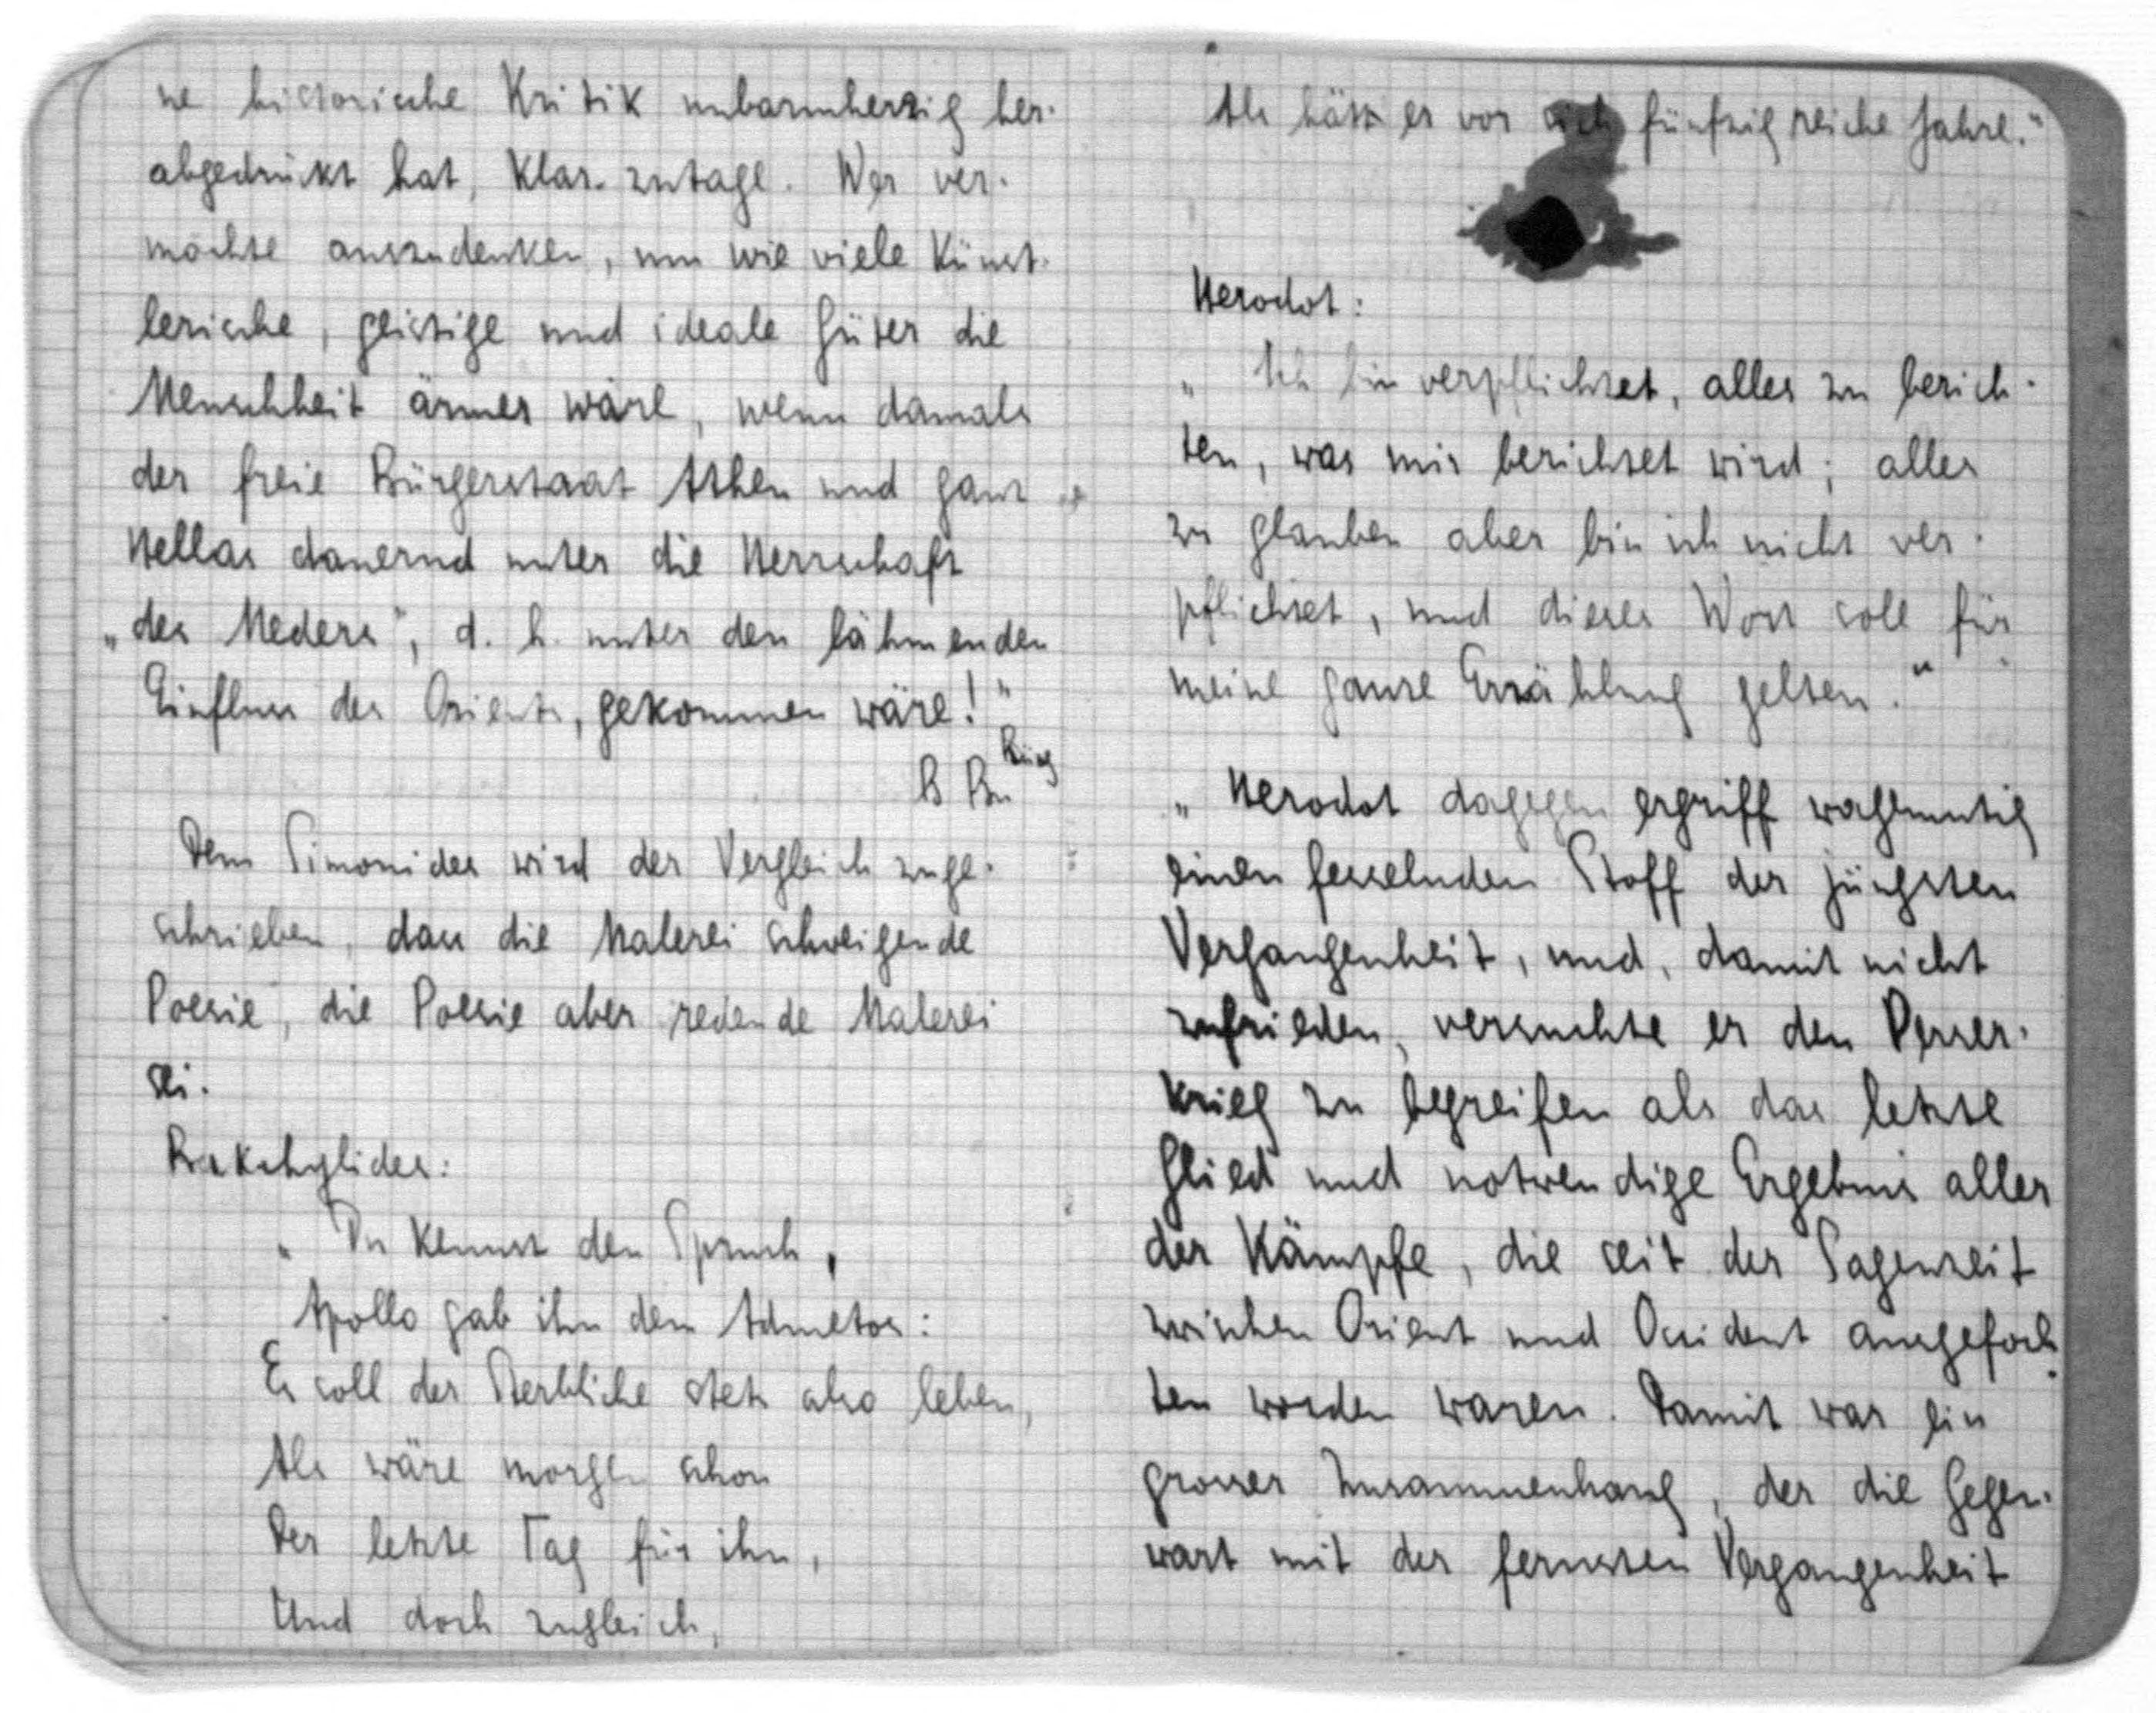 ne historische Kritik unbarmherzig her-
abgedrückt hat, klar zutage. Wer ver-
möchte auszudenken, um wie viele künst-
lerische, geistige und ideale Güter die
Menschheit ärmer wäre, wenn damals
der freie Bürgerstaat Athen und ganz
Hellas dauernd unter die Herrschaft
„des Meders", d. h. unter den lähmenden
Einfluss des Orients, gekommen wäre!"
Dem Simonides wird der Vergleich zuge-
schrieben, dass die Malerei schweigende
Poesie, die Poesie aber redende Malerei
sei.
Bakchylides:
„Du kennst den Spruch,
Apollo gab ihn dem Admetos:
Es soll der Sterbliche stets also leben,
Als wäre morgen schon
Der letzte Tag für ihn,
Und doch zugleich,
Als hätt er vor sich fünfzig reiche Jahre."
Herodot:
„Ich bin verpflichtet, alles zu berich-
ten, was mir berichtet wird; alles
zu glauben aber bin ich nicht ver-
pflichtet, und dieses Wort soll für
meine ganze Erzählung gelten."
„Herodot dagegen ergriff wagemutig
einen fesselnden Stoff der jüngsten
Vergangenheit, und, damit nicht
zufrieden, versuchte er den Perser-
krieg zu begreifen als das letzte
Glied und notwendige Ergebnis aller
der Kämpfe, die seit der Sagenzeit
zwischen Orient und Occident ausgefoch-
ten worden waren. Damit war ein
grosser Zusammenhang, der die Gegen-
wart mit der fernsten Vergangenheit